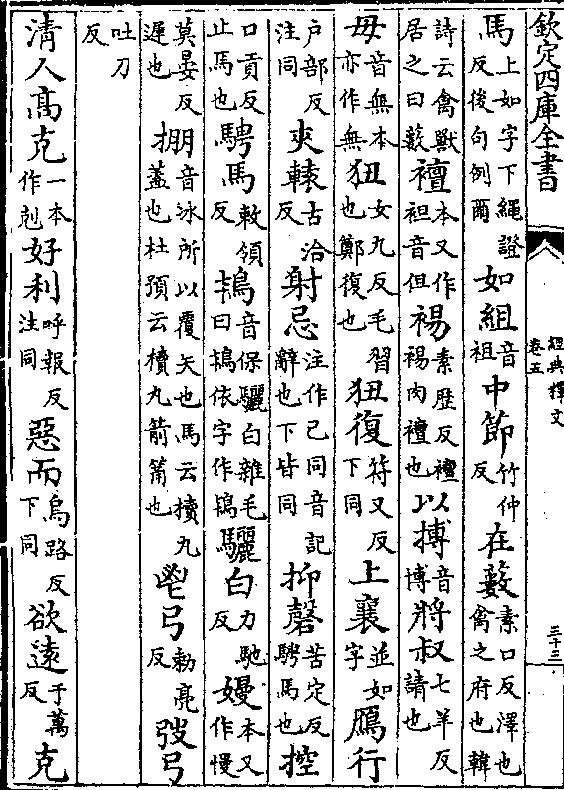 欽定四庫全書
經典釋文
卷五
三十三
馬上如字下繩證反後句例爾如組音祖中節竹仲反在藪素口反澤也禽之府也韓
詩云禽獸居之曰藪襢本又作袒音但裼素歷反襢裼肉襢也以搏音博將叔七羊反請也
毋音無本亦作無狃女九反毛習也鄭復也狃復符又反下同上襄並如字鴈行
户部反注同夾轅古洽反射忌注作己同音記辭也下皆同抑磬苦定反騁馬也控
口貢反止馬也騁馬敕領反鴇音保驪白雜毛曰鴇依字作鴇驪白力馳反嫚本又作慢
莫晏反遲也掤音冰所以覆矢也馬云櫝丸蓋也杜預云櫝丸箭筩也鬯弓勑亮反弢弓
吐刀反
清人高克一本作剋好利呼報反注同惡而烏路反下同欲遠于萬反克